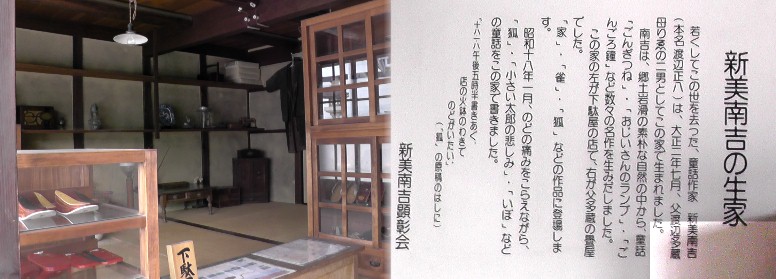 新美南吉の生家
若くしてこの世を去った、童話作家　新美南吉
(本名 渡辺正八)は、大正二年七月、父渡辺多蔵
母りゑの二男としてこの家で生まれました。
南吉は、郷土岩滑の素朴な自然の中から、童話
「ごんぎつね」・「おじいさんのランプ」・「ご
んごろ鐘」など数々の名作を生みだしました。
この家の左が下駄屋の店で、右が父多蔵の畳屋
でした。
「家」・「雀」・「狐」などの作品に登場しま
す。
昭和十八年一月、のどの痛みをこらえながら、
「狐」・「小さい太郎の悲しみ」・「いぼ」など
の童話をこの家で書きました。
「十八・八午後五時半書きあぐ
店の火鉢のわきで
のどがいたい」
(「狐」の原稿のはしに)
新美南吉顕彰会
下駄